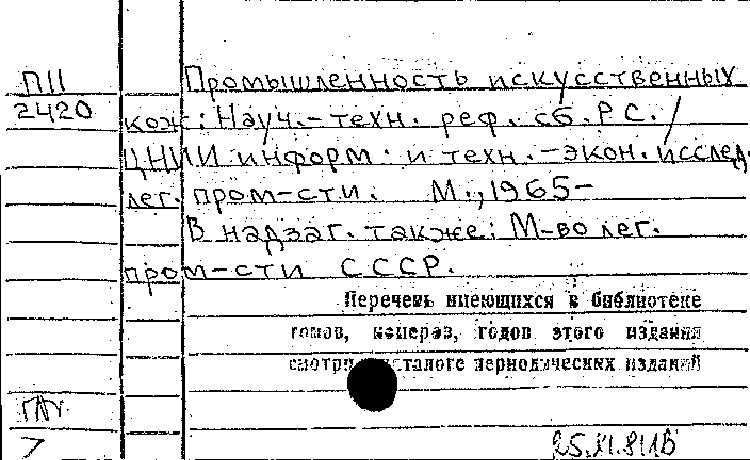 П11
2420
Промышленность искусственных
кож: Науч.-техн. реф. сб. Р.С. /
ЦНИИ информ. и техн.-экон. исслед.
лег. пром-сти. М., 1965-
В надзаг. также: М-во лег.
пром-сти СССР.
Перечень имеющихся в библиотеке
томов, номеров, годов этого издания
смотри каталоге периодических изданий